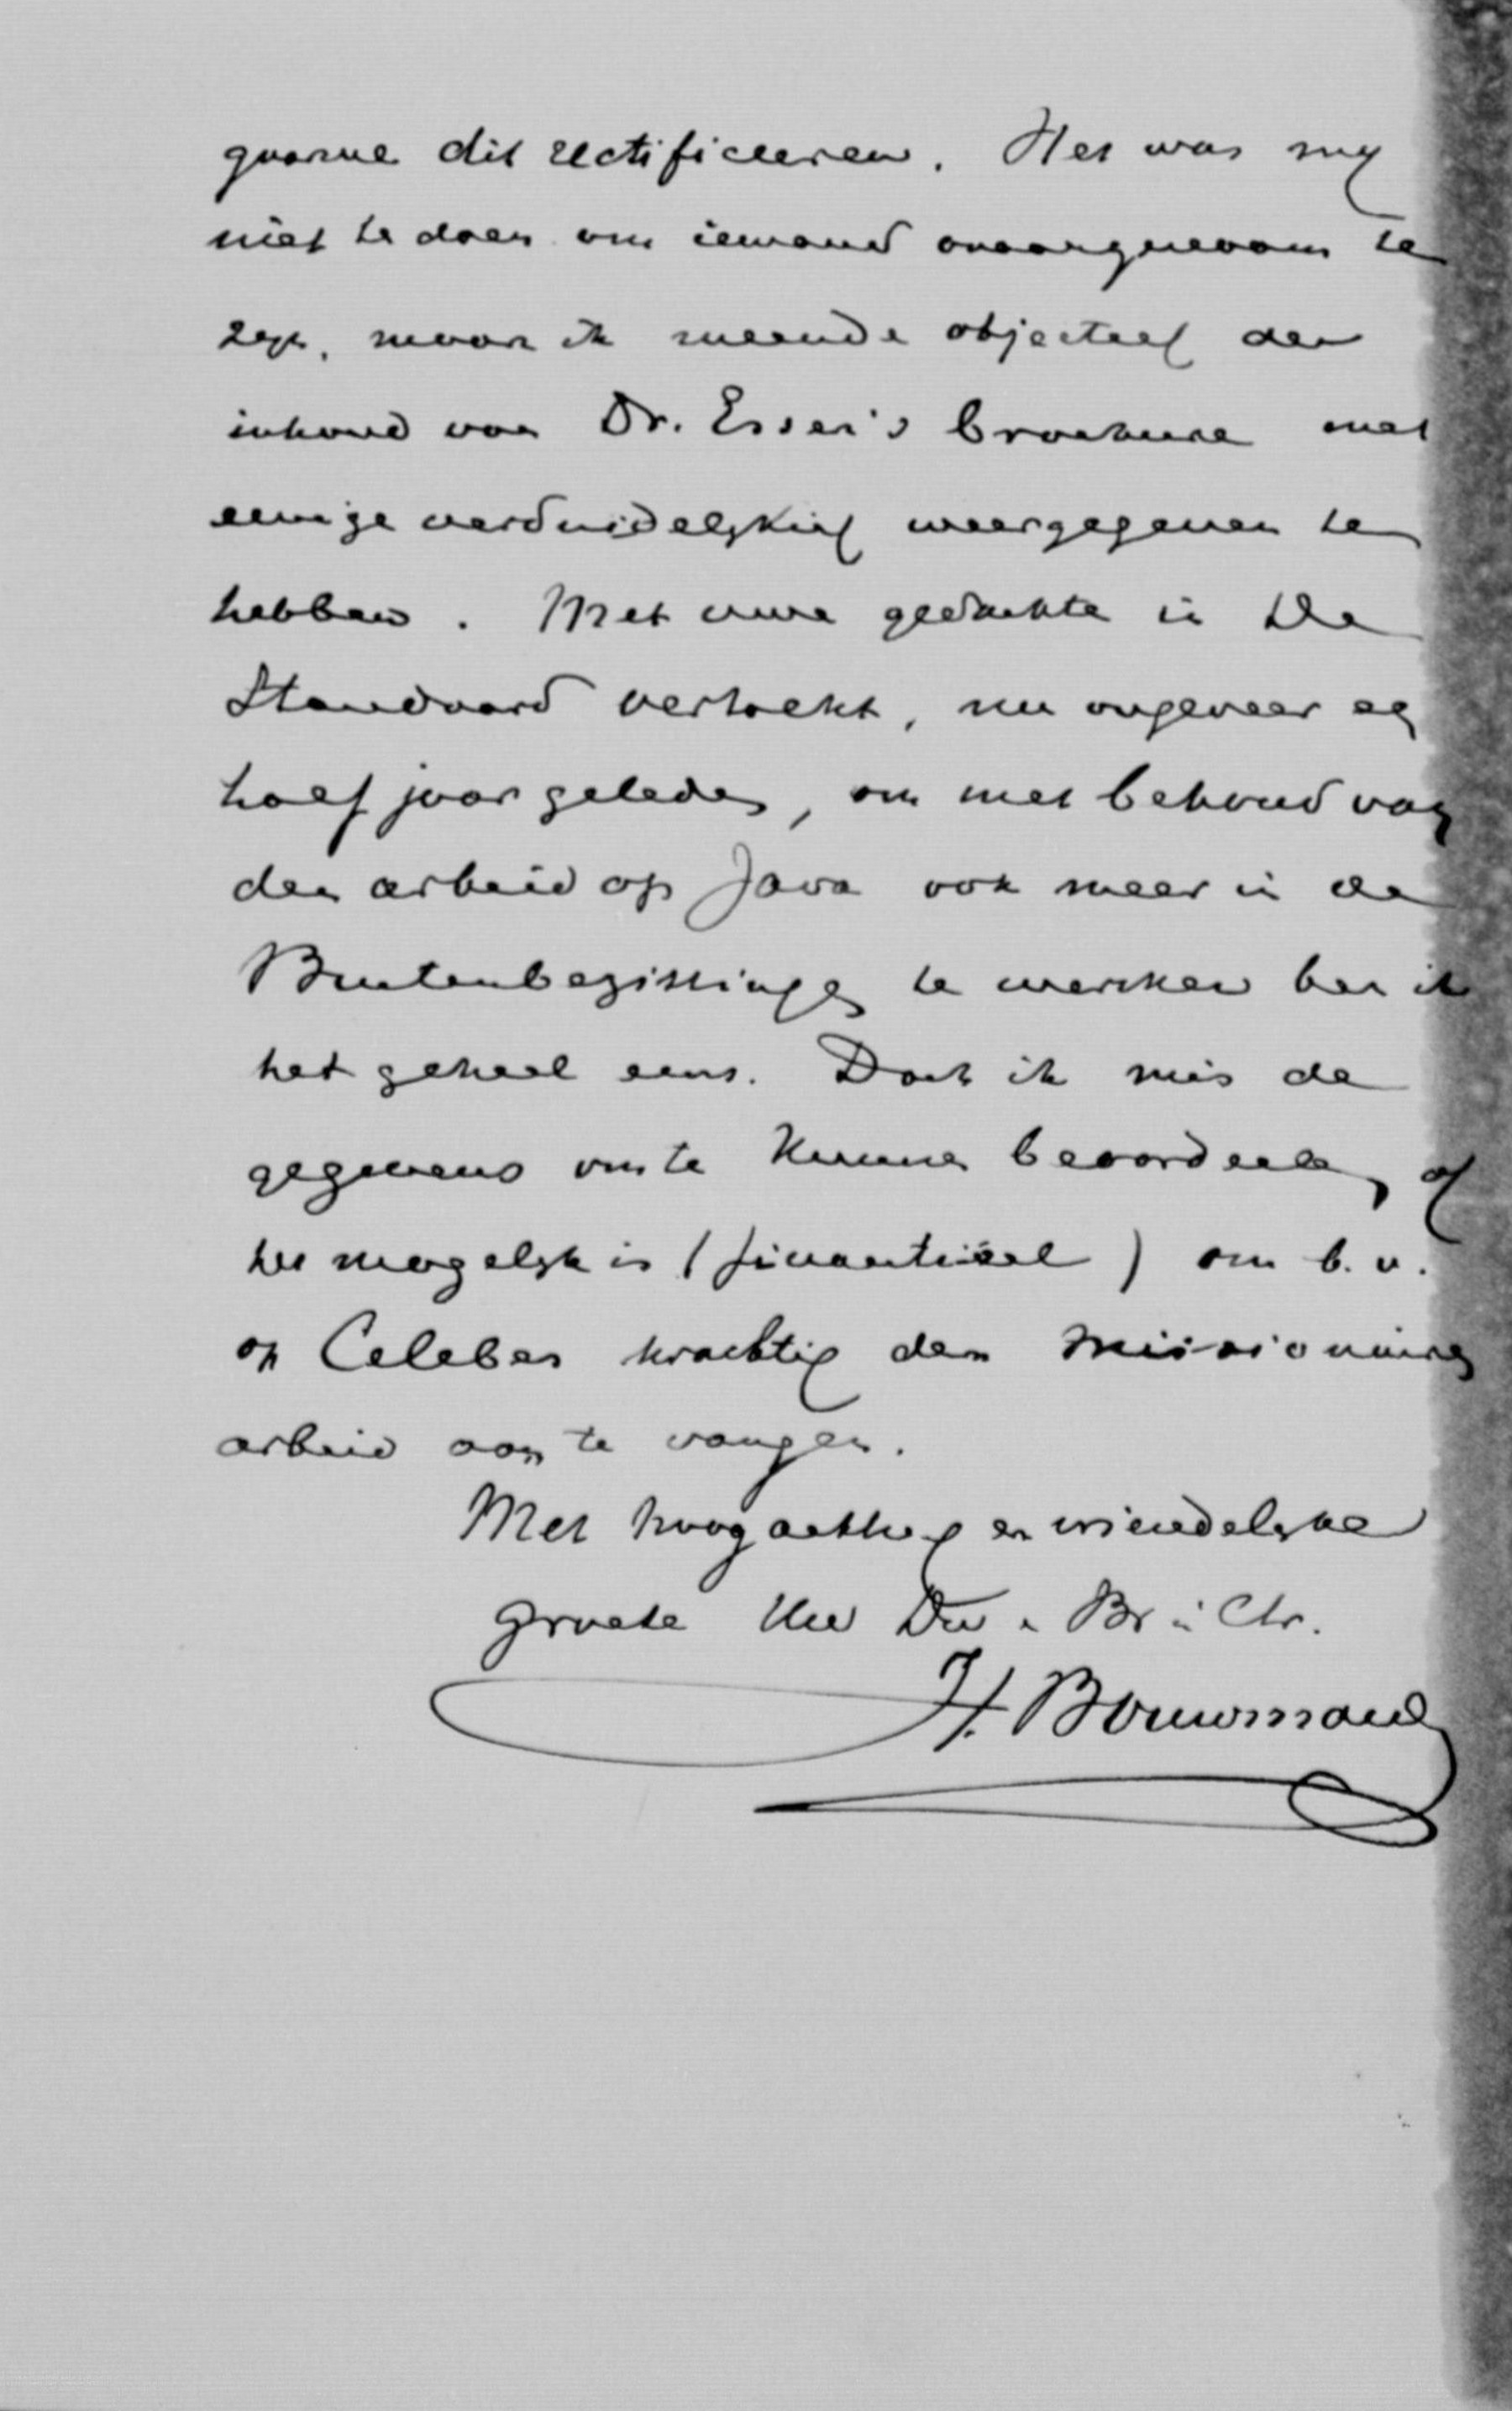 gaarne dit rectificeeren. Het was mij
niet te doen om iemand onaangenaam te
zijn, maar ik meende objectief den
inhoud van Dr. Esser's brochure met
eenige verduidelijking weergegeven te
hebben. Met uwe gedachte in De
Standaard vertolkt, nu ongeveer een
half jaar geleden, om met behoud van
den arbeid op Java ook meer in de
Buitenbezittingen te werken ben ik
het geheel eens. Doch ik mis de
gegevens om te kunnen beoordeelen, of
het mogelijk is (financiëel) om b.v.
op Celebes krachtig den missionairen
arbeid aan te vangen.
Met hoogachting en vriendelijke
groete Uw Dw. Br. i. Chr.
H. Bouwman